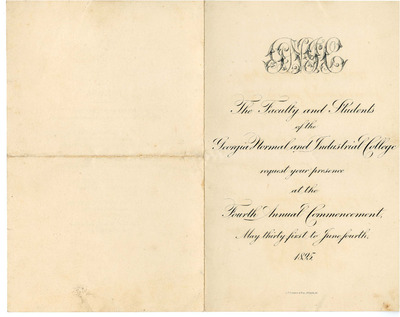 The Faculty and Students
of the
Georgia Normal and Industrial College
request your presence
at the
Fourth Annual Commencement,
May thirty first to June fourth,
1895